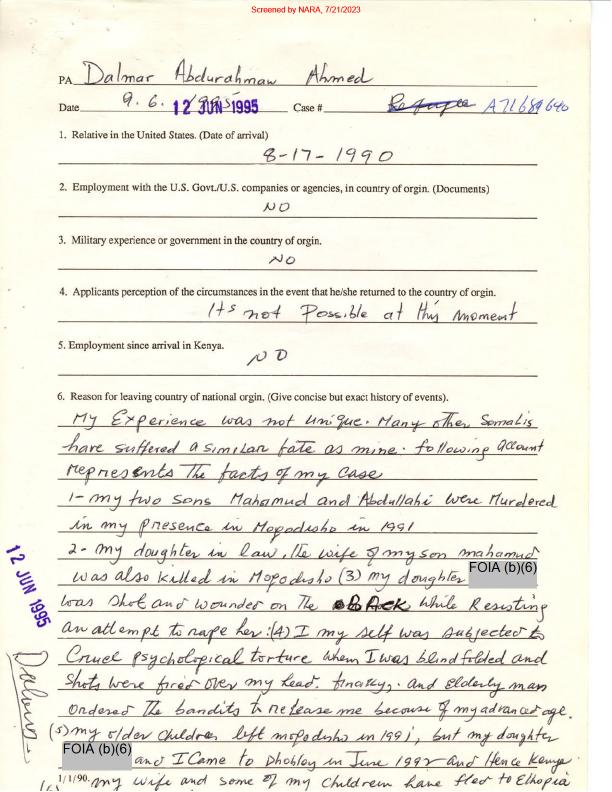 Screened by NARA, 7/21/2023
PA Dalmar Abdurahman Ahmed
Date 9. 6. 1995 12 JUN 1995 Case # Refugee A71689640
1. Relative in the United States. (Date of arrival)
8-17-1990
2. Employment with the U.S. Govt./U.S. companies or agencies, in country of orgin. (Documents)
NO
3. Military experience or government in the country of orgin.
NO
4. Applicants perception of the circumstances in the event that he/she returned to the country of orgin.
Its not Possible at this moment
5. Employment since arrival in Kenya.
NO
6. Reason for leaving country of national orgin. (Give concise but exact history of events).
My Experience was not unique. Many other Somalis
have suffered a similar fate as mine. following account
represents The facts of my case
1- my two sons Mahamud and Abdullahi were Murdered
in my presence in Mogodisho in 1991
2- my doughter in law, the wife of my son mahamud
was also killed in Mogodisho (3) my doughter FOIA (b)(6)
was shot and wounded on The Back while Resisting
an attempt to rape her. (4) I my self was subjected to
Cruel psychological torture when I was blindfolded and
Shots were fired over my head. finaley, and Elderly man
ordered The bandits to release me becouse of my advanced age.
(5) my older children left mogodisho in 1991, but my doughter
FOIA (b)(6) and I Came to Dhobley in June 1992 and Hence Kenya
1/1/90. my wife and some of my children have fled to Ethopia
12 JUN 1995